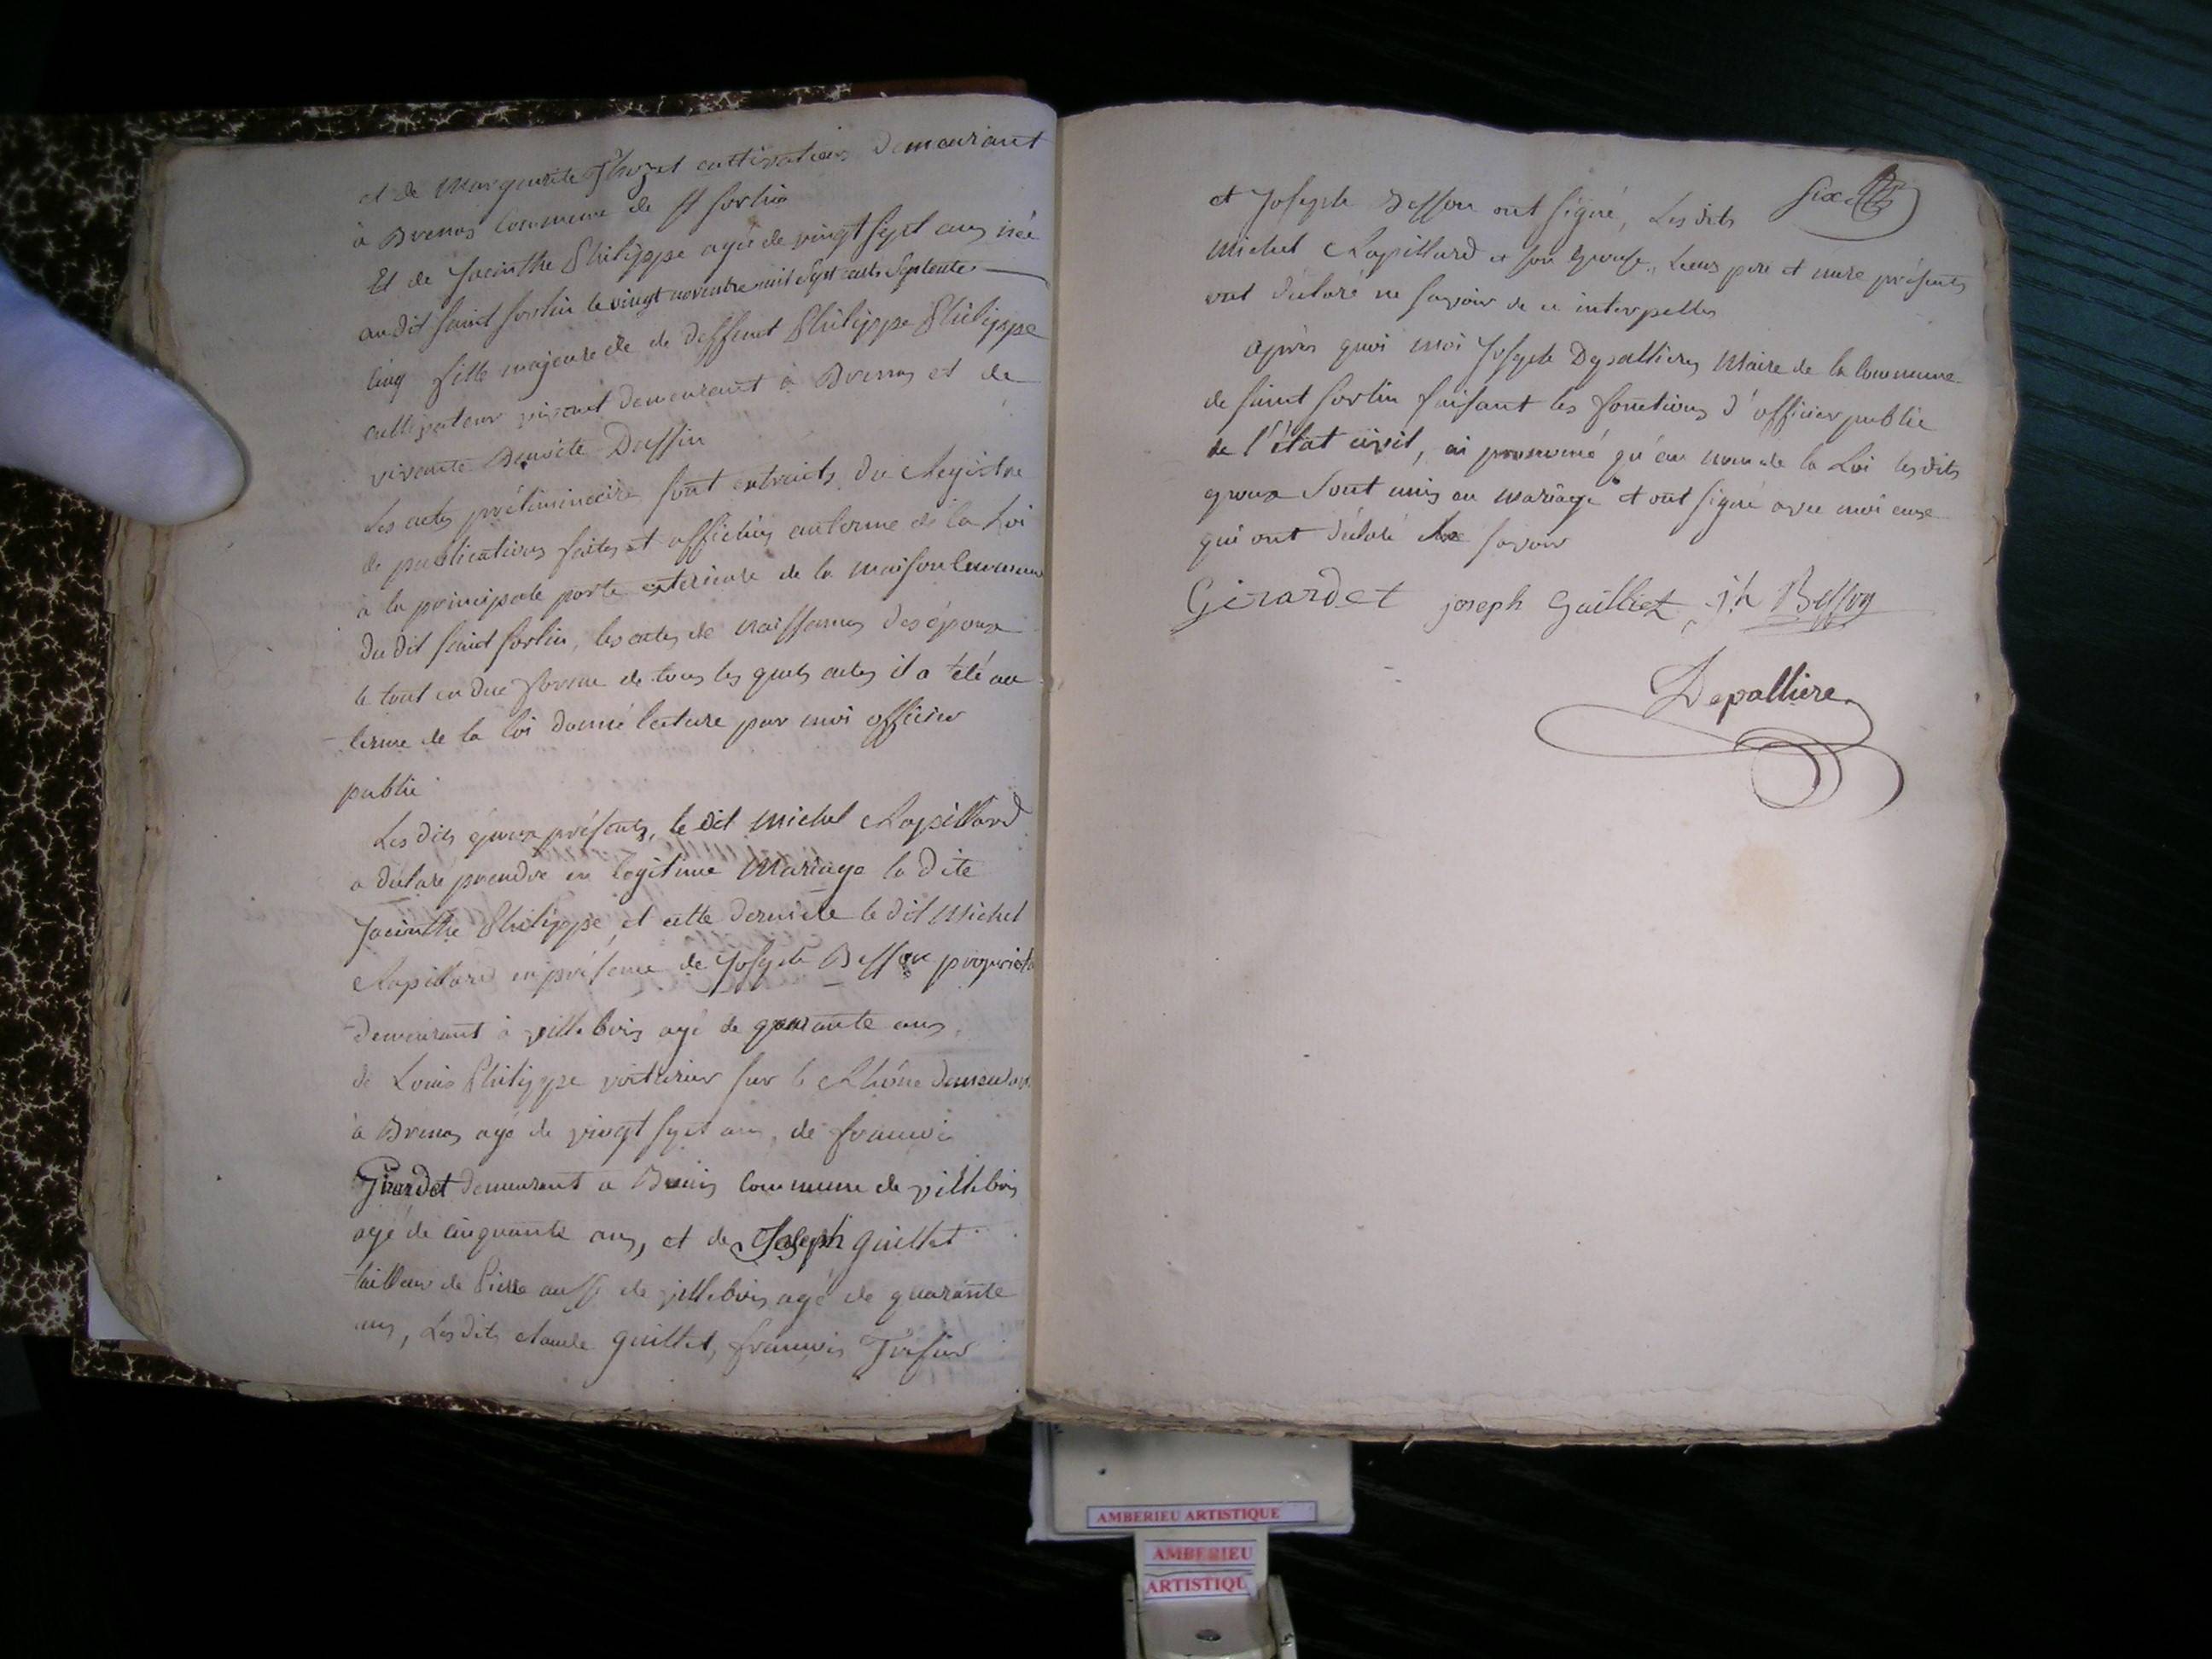 et de Marguerite Thozet cultivateurs demeurant
à Brenas Commune de St Sorlin
Et de Jacinthe Philippe agée de vingt sept ans née
au dit Saint Sorlin le vingt novembre mil sept cents septente
cinq fille majeure de de deffunt Philippe Philippe
cultivateur vivant demeurant à Brenas et de
vivante Benoite Duffin
Les actes préliminaire sont extraits du Registre
de publications faites et affichées au terme de la Loi
à la principale porte exterieure de la Maison Commune
du dit Saint Sorlin, les actes de Naissances des époux
le tout en due forme de tous les quels actes il a été au
terme de la loi donné lecture par moi officier
public
Les dits époux présents, le dit Michel Rapillard
a déclaré prendre en legitime Mariage la dite
Jacinthe Philippe, et cette derniere le dit Michel
Rapillard en présence de Joseph Besson proprieta
demeurant à villebois agé de quarante ans,
de Louis Philippe voiturier sur le Rhône demeurant
à Brenas agé de vingt sept ans, de francois
Girardet demeurant a Commune de villebois
agé de cinquante ans, et de Joseph Guillet
tailleur de Pierre aussi de villebois agé de quarante
ans, Les dits claude Guillet, francois
six
et Joseph Besson ont signé, Les dits
Michel Rapillard et son Epouse, Leurs pere et mere présents
ont déclaré ne savoir de ce interpellés
après quoi moi Joseph Depallieres Maire de la Commune
de Saint Sorlin faisant les fonctions d'officier public
de l'état civil, ai prononcé qu'au nom de la Loi les dits
epoux sont unis en mariage et ont signé avec moi ceux
qui ont déclaré le savoir
Girardet joseph Guilliet jh Besson
Depalliere
AMBERIEU ARTISTIQUE
AMBERIEU
ARTISTIQU